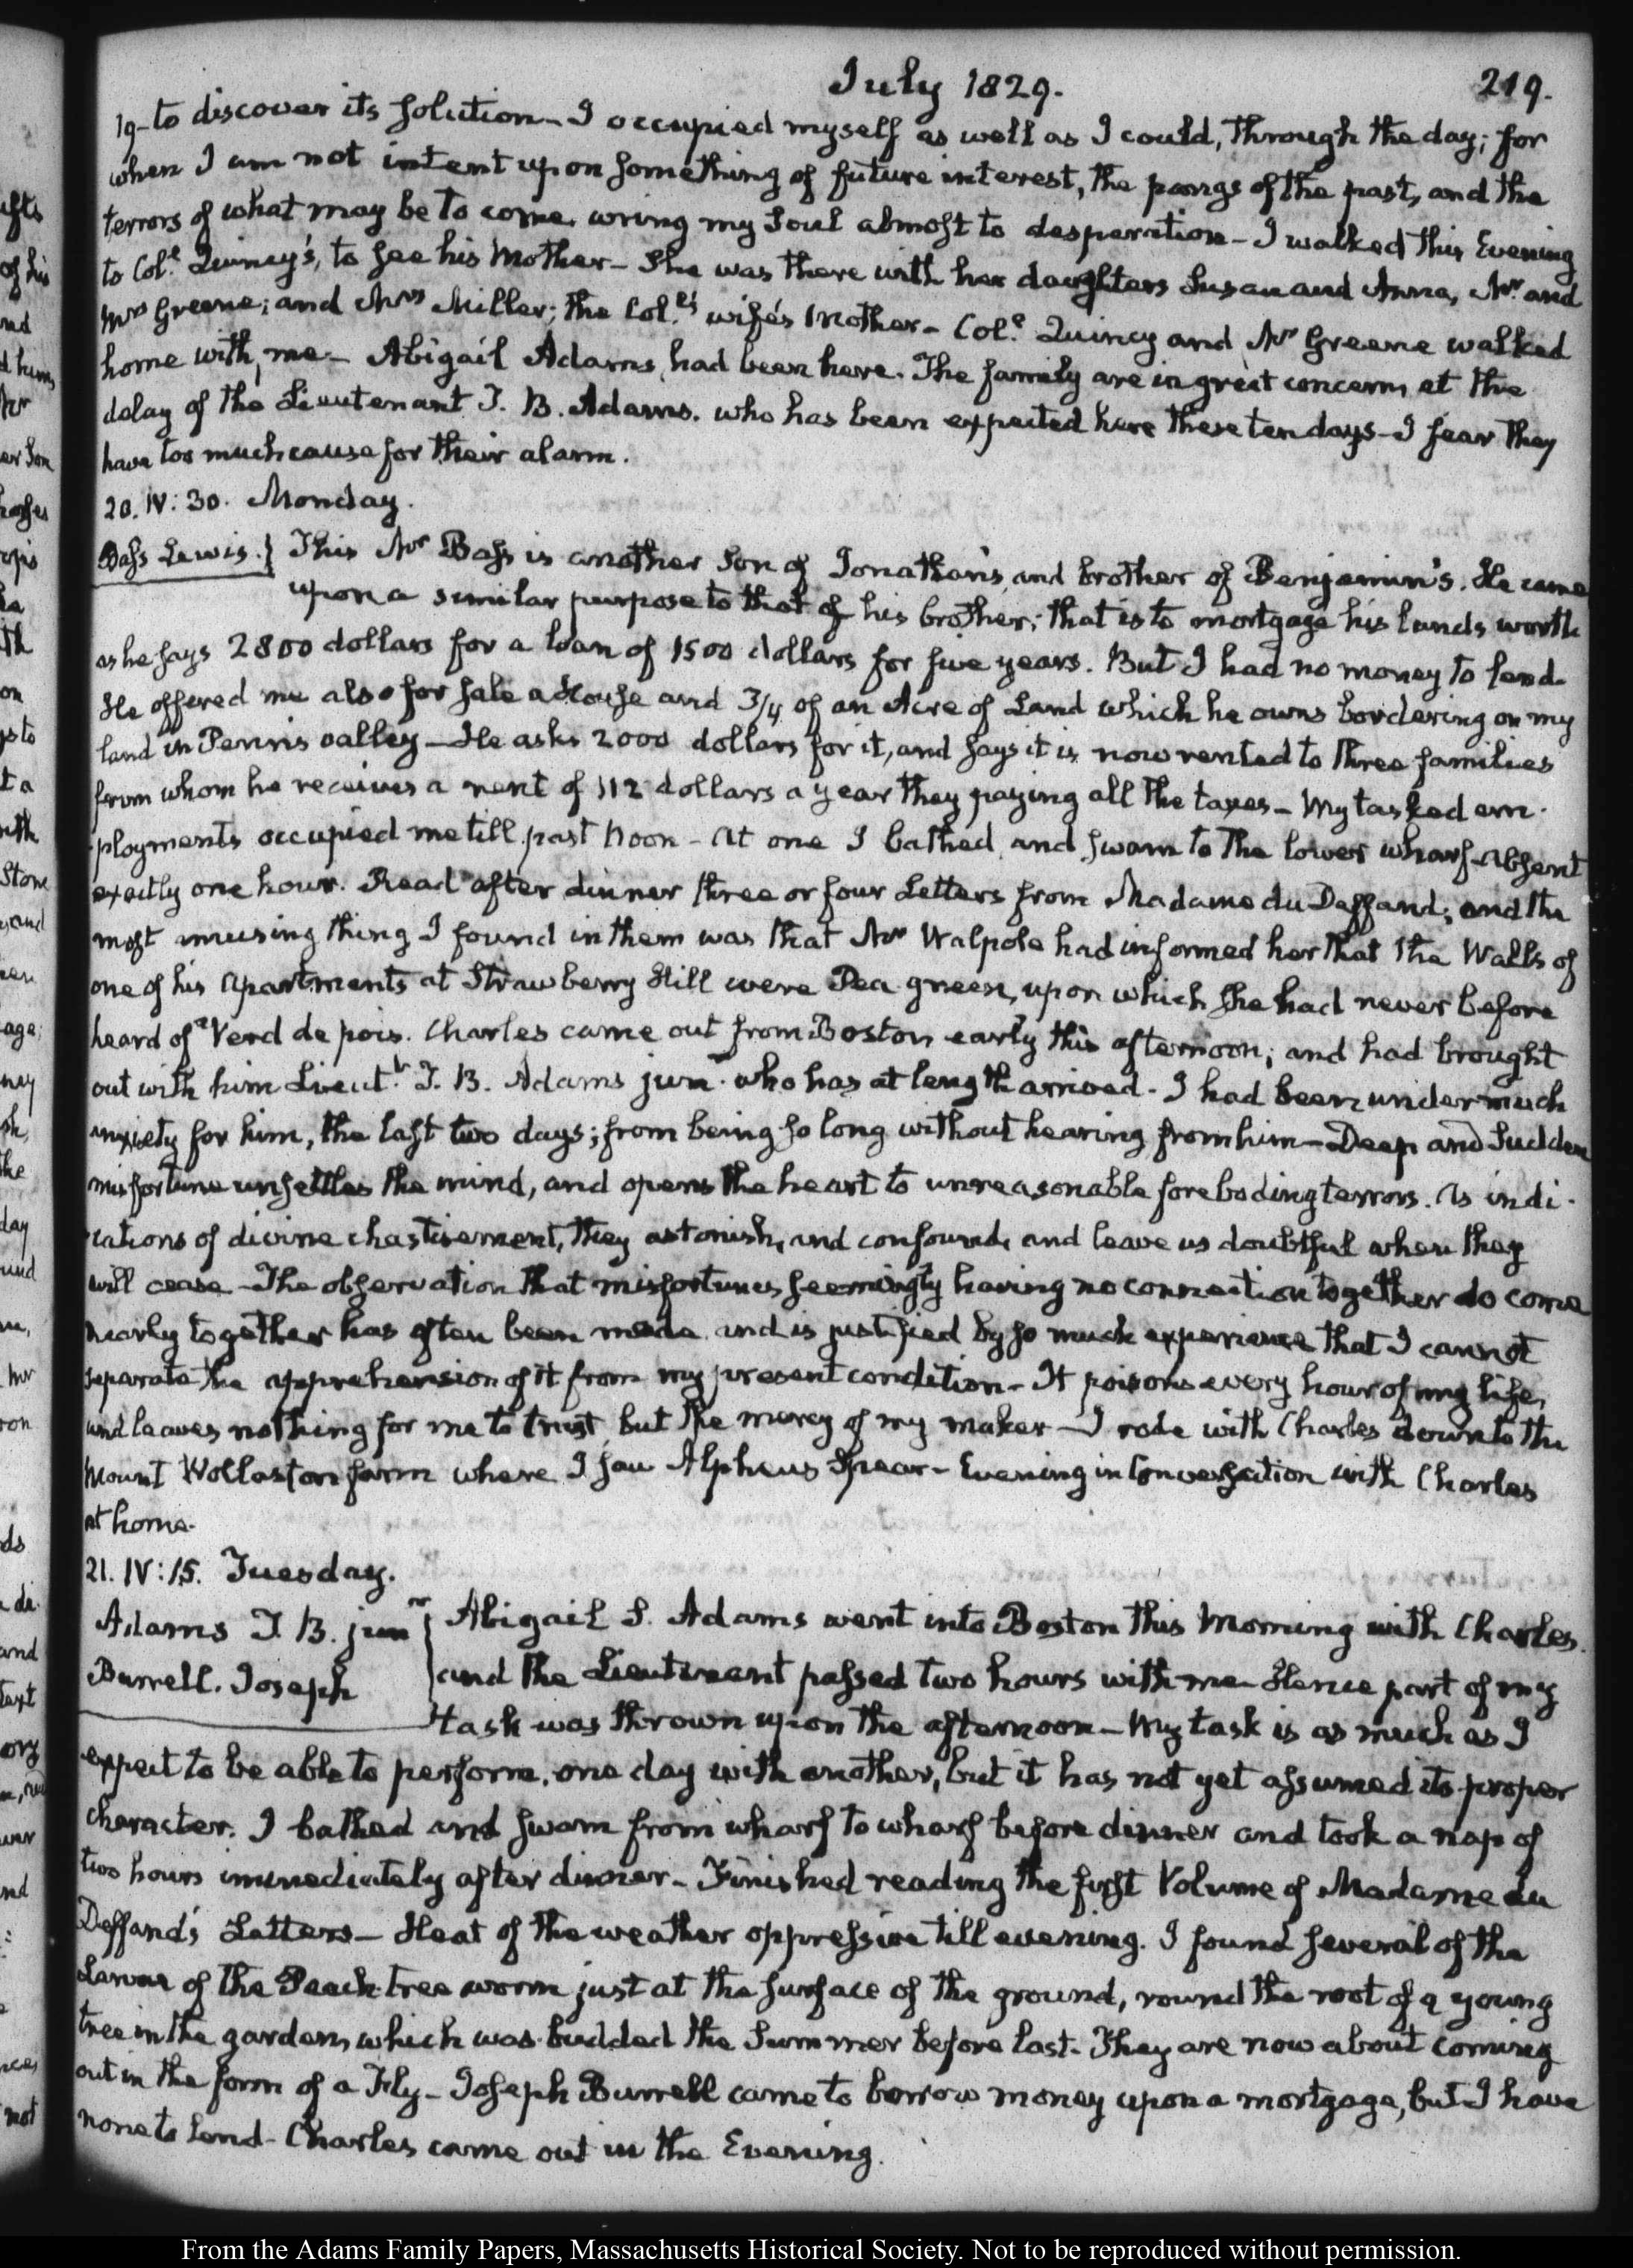 July 1829.
219.
19- to discover its solution- I occupied myself as well as I could, through the day; for
when I am not intent upon something of future interest, the pangs of the past, and the
terrors of what may be to come wring my Soul almost to desperation- I walked this Evening
to Colᵉ Quincy's, to see his Mother- She was there with her daughters Susan and Anna, Mr. and
Mrs Greene; and Mrs Miller; the Col.ᵉˢ wife's Mother- Colᵉ Quincy and Mr Greene walked
home with me- Abigail Adams had been here. The family are in great concern at the
delay of the Lieutenant T. B. Adams. who has been expected here these ten days- I fear they
have too much cause for their alarm.
20. IV: 30. Monday.
Bass Lewis. } This Mr Bass is another Son of Jonathan's and brother of Benjamin's. He came
upon a similar purpose to that of his brother; that is to mortgage his lands worth
as he says 2800 dollars for a loan of 1500 dollars for five years. But I had no money to lend-
He offered me also for sale a House and 3/4 of an Acre of Land which he owns bordering on my
land in Penn's valley- He asks 2000 dollars for it, and says it is now rented to three families
from whom he receives a rent of 112 dollars a year they paying all the taxes- My tasked em-
ployments occupied me till past Noon- At one I bathed and swam to the lower wharf- absent
exactly one hour. Read after dinner three or four Letters from Madame du Deffand; and the
most amusing thing I found in them was that Mr Walpole had informed her that the Walls of
one of his Apartments at Strawberry Hill were Pea green, upon which she had never before
heard of a Verd de pois. Charles came out from Boston early this afternoon; and had brought
out with him Lieut.ᵗ T. B. Adams junʳ who has at length arrived- I had been under much
anxiety for him, the last two days; from being so long without hearing from him- Deep and Sudden
misfortune unsettles the mind, and opens the heart to unreasonable foreboding terrors. As indi-
cations of divine chastisement, they astonish, and confound, and leave us doubtful when they
will cease- The observation that misfortunes seemingly having no connection together do come
nearly together has often been made and is justified by so much experience that I cannot
separate the apprehension of it from my present condition- It poisons every hour of my life,
and leaves nothing for me to trust but the mercy of my maker- I rode with Charles down to the
Mount Wollaston farm where I saw Alpheus Spear- Evening in Conversation with Charles
at home-
21. IV: 15. Tuesday.
Adams T. B. junr } Abigail S. Adams went into Boston this Morning with Charles.
Burrell. Joseph } and the Lieutenant passed two hours with me- Hence part of my
task was thrown upon the afternoon- My task is as much as I
expect to be able to perform, one day with another, but it has not yet assumed its proper
character. I bathed and swam from wharf to wharf before dinner and took a nap of
two hours immediately after dinner- Finished reading the first Volume of Madame du
Deffand's Letters- Heat of the weather oppressive till evening. I found several of the
Larvae of the Peach tree worm just at the surface of the ground, round the root of a young
tree in the garden, which was budded the Summer before last. They are now about coming
out in the form of a Fly- Joseph Burrell came to borrow money upon a mortgage, but I have
none to lend- Charles came out in the Evening.
From the Adams Family Papers, Massachusetts Historical Society. Not to be reproduced without permission.